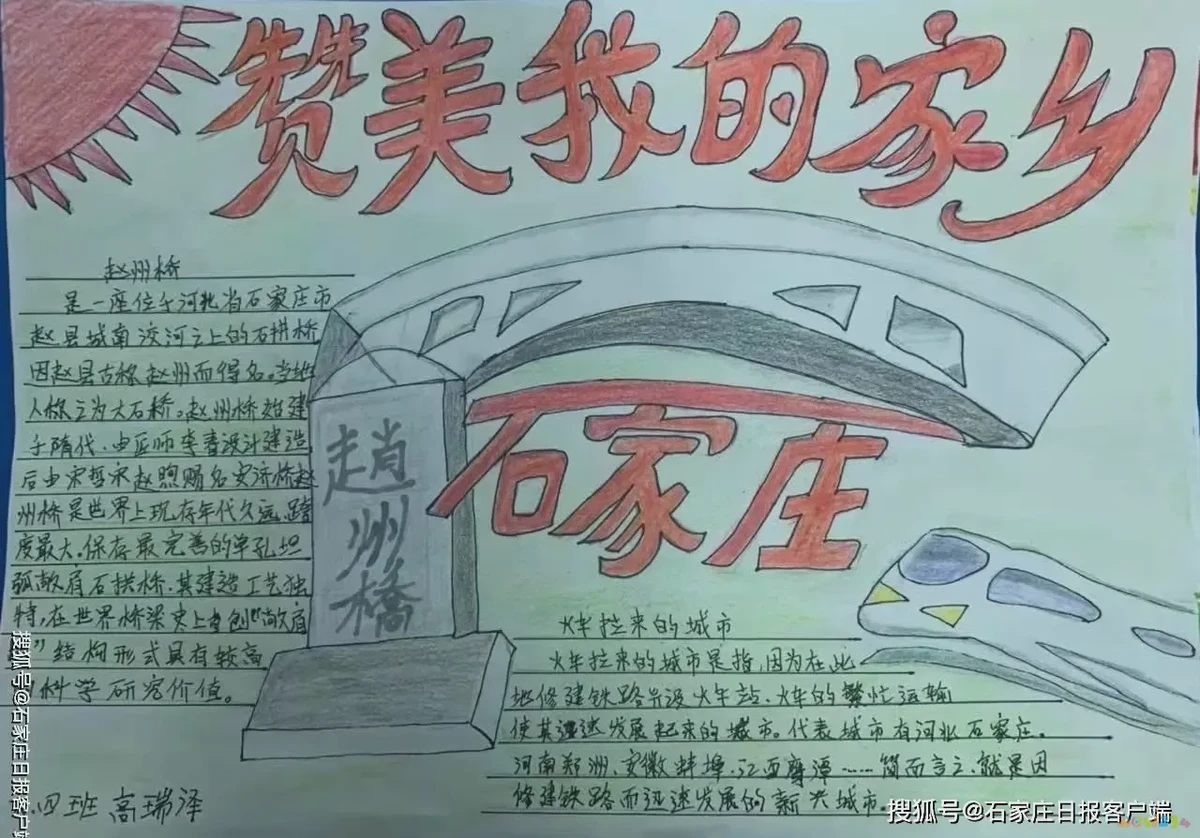 赞美我的家乡
赵州桥
是一座位于河北省石家庄市
赵县城南洨河之上的石拱桥
因赵县古称赵州而得名。当地
人称之为大石桥。赵州桥始建
于隋代、由匠师李春设计建造
后由宋哲宗赵煦赐名安济桥赵
州桥是世界上现存年代久远、跨
度最大、保存最完善的单孔坦
弧敞肩石拱桥、其建造工艺独
特,在世界桥梁史上首创"敞肩
"结构形式具有较高
科学研究价值。
趙州橋
石家庄
火车拉来的城市
火车拉来的城市是指,因为在此
地修建铁路并设火车站、火车的繁忙运输
使其迅速发展起来的城市。代表城市有河北石家庄、
河南郑州、安徽蚌埠、江西鹰潭……简而言之、就是因
修建铁路而迅速发展的新兴城市
四班 高瑞泽
搜狐号@石家庄日报客户端
搜狐号@石家庄日报客户端